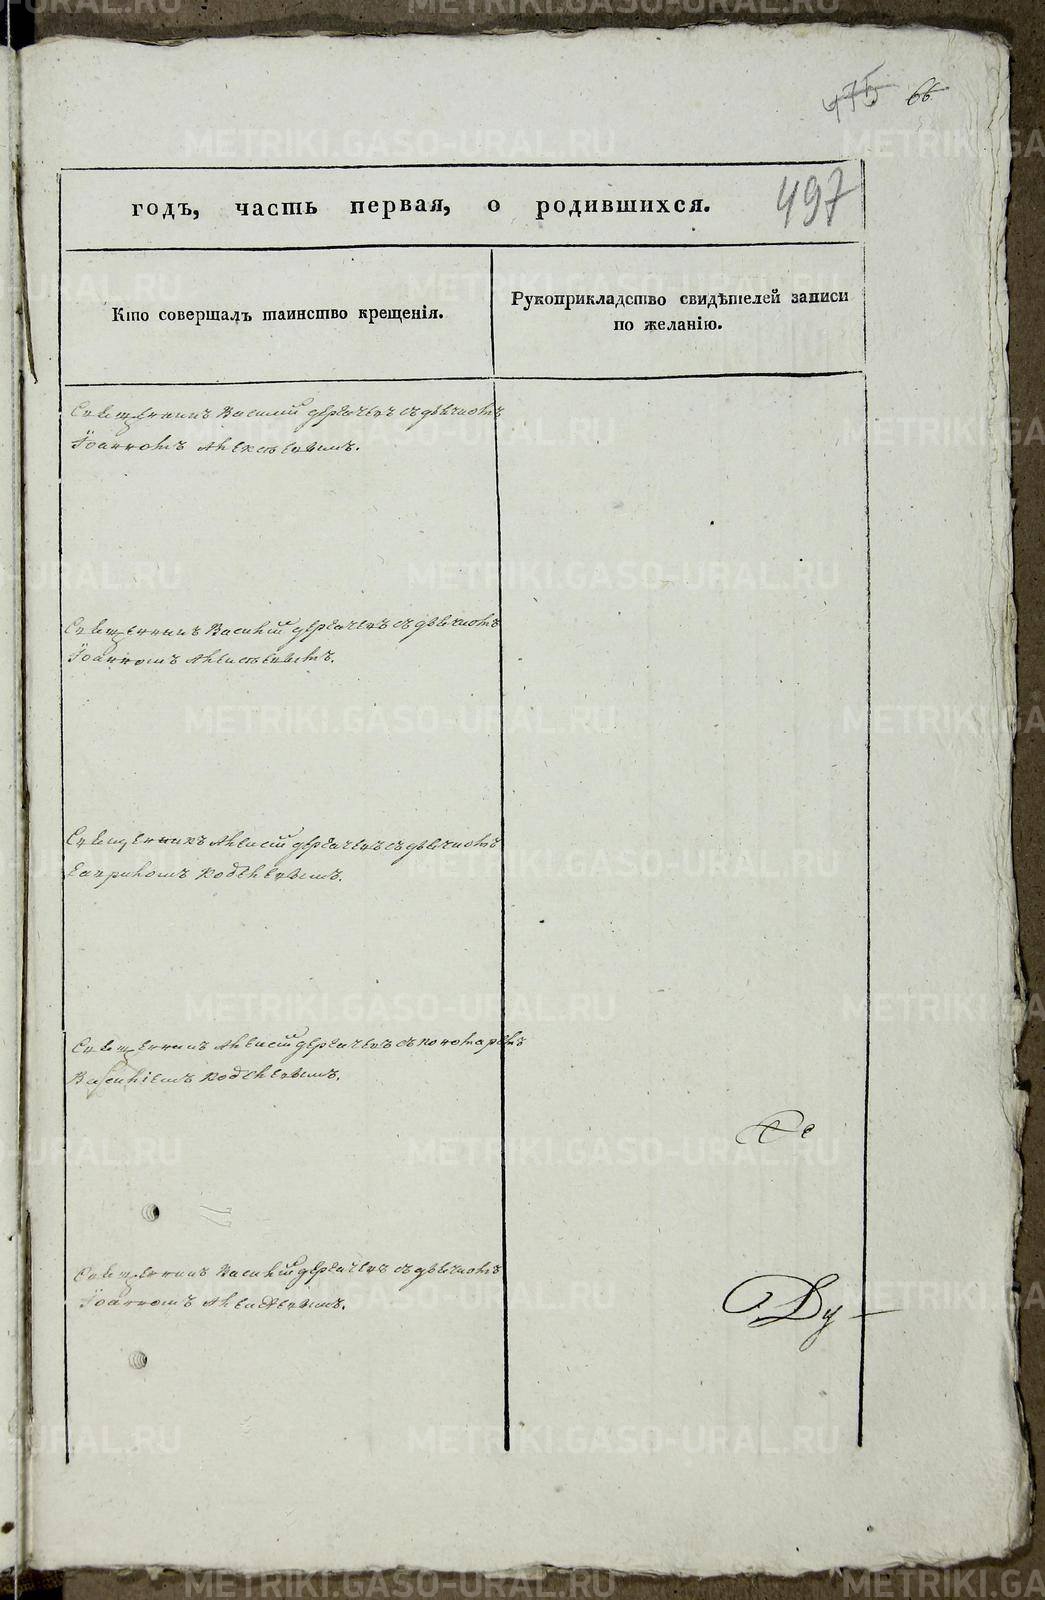 475 66
497
годъ, часть первая, о родившихся.
Кто совершалъ таинство крещенія.
Рукоприкладство свидѣтелей записи
по желанію.
Священникъ Василій Дерячевъ съ дьячкомъ
Іоанномъ Алексѣевымъ.
Священникъ Василій Дерячевъ съ дьячкомъ
Іоанномъ Алексѣевымъ.
Священникъ Алексій Дерячевъ съ дьячкомъ
Кобелевымъ.
Священникъ Алексій Дерячевъ съ пономаремъ
Василіемъ Кобелевымъ.
Священникъ Василій Дерячевъ съ дьячкомъ
Іоанномъ Алексѣевымъ.
Ду
METRIKI.GASO-URAL.RU